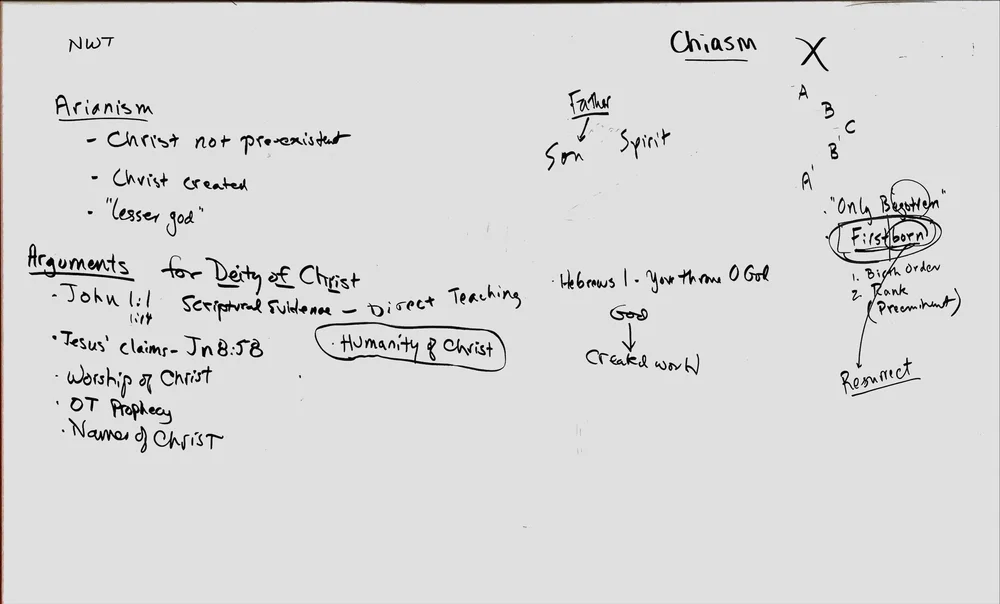 NWT
Arianism
- Christ not pre-existent
- Christ created
- "lesser god"
Arguments for Deity of Christ
· John 1:1 Scriptural Evidence - Direct Teaching
1:14
· Jesus' claims - Jn 8:58
· Humanity of Christ
· Worship of Christ
· OT Prophecy
· Names of Christ
Father
Son Spirit
· Hebrews 1 - Your throne O God
God
Created world
Chiasm X
A
B
C
B'
A'
· "Only Begotten"
· "Firstborn"
1. Birth Order
2. Rank
(Preeminent)
Resurrect